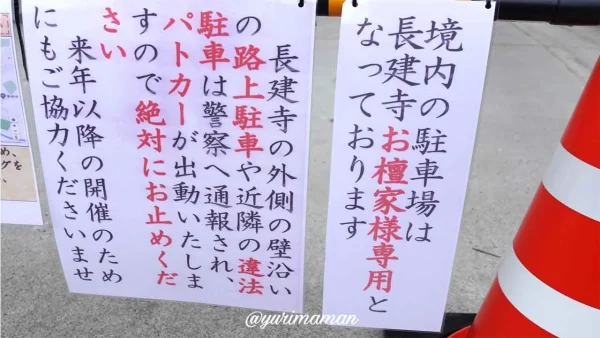 境内の駐車場は
長建寺お檀家様専用と
なっております
長建寺の外側の壁沿い
の路上駐車や近隣の違法
駐車は警察へ通報され、
パトカーが出動いたしま
すので絶対にお止めくだ
さい
来年以降の開催のため
にもご協力くださいませ
@yurimaman